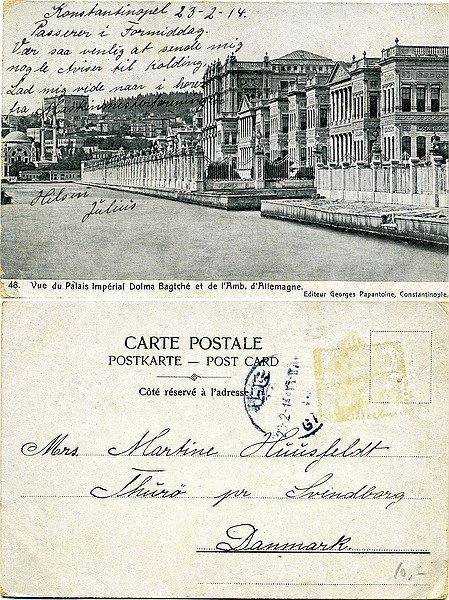 Konstantinopel 23-2-14.
Passerer i Formiddag.
Vær saa venlig at sende mig
nogle Aviser til Kolding.
Lad mig vide naar i hører
fra
Hilsen
Julius
48. Vue du Palais Impérial Dolma Bagtché et de l'Amb. d'Allemagne.
Editeur Georges Papantoine, Constantinople.
CARTE POSTALE
POSTKARTE — POST CARD
Côté réservé à l'adresse.
Mrs. Martine Huusfeldt
Thurö pr Svendborg
Danmark.
10,-